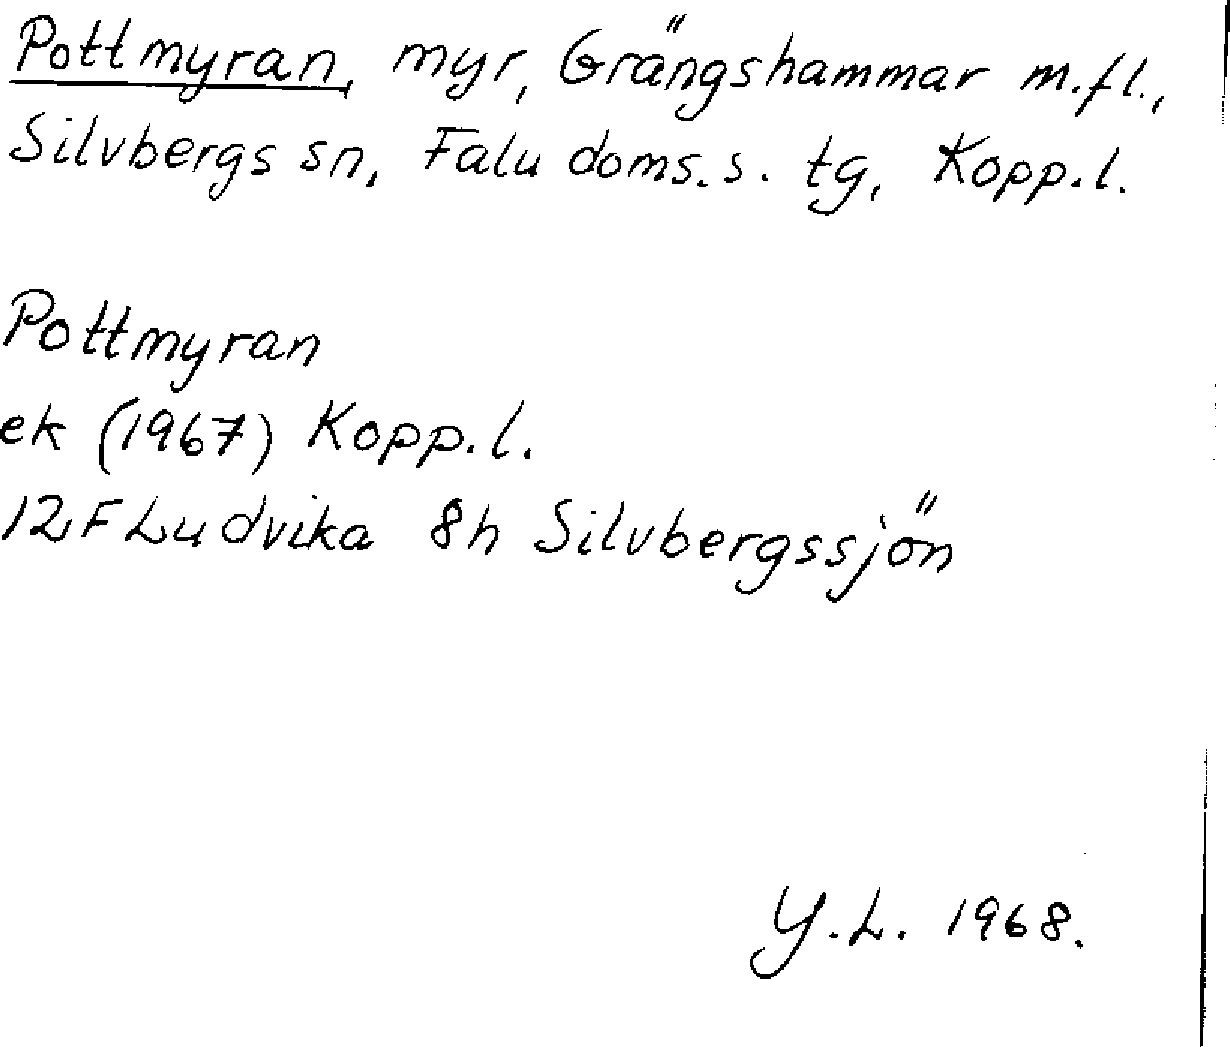 Pottmyran, myr, Grängshammar m.fl.,
Silvbergs sn, Falu doms.s. tg, Kopp.l.
Pottmyran
ek (1967) Kopp.l.
12F Ludvika 8h Silvbergssjön
Y.L. 1968.